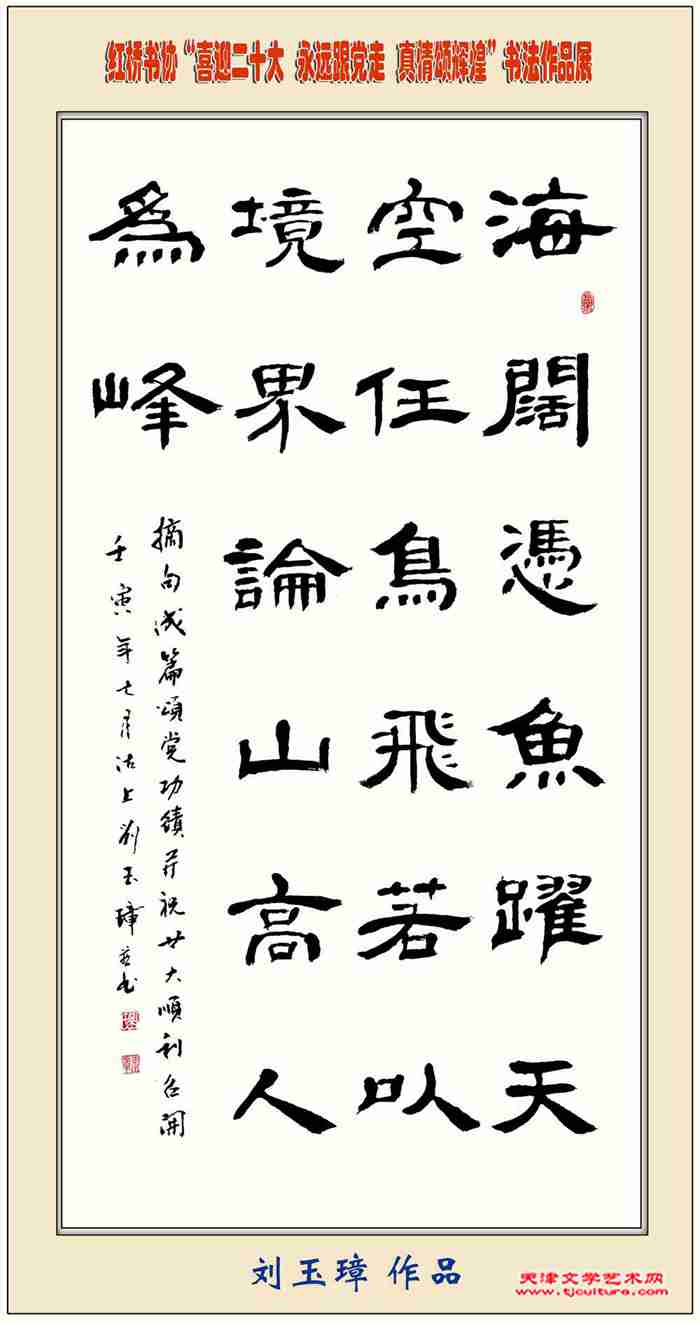 红桥书协“喜迎二十大 永远跟党走 真情颂辉煌”书法作品展
海闊憑魚躍天
空任鳥飛若以
境界論山高人
為峰
摘句成篇頌党功績并祝廿大順利召開
壬寅年七月沽上劉玉璋并书
刘玉璋 作品
天津文学艺术网
www.tjculture.com